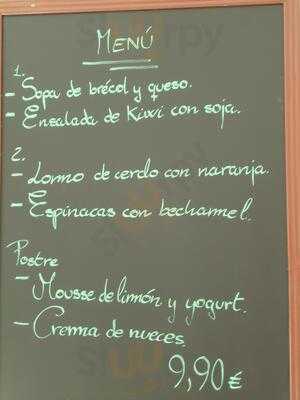 MENÚ
1.
- Sopa de brécol y queso.
- Ensalada de Kiwi con soja.
2.
- Lomo de cerdo con naranja.
- Espinacas con bechamel.
Postre
- Mousse de limón y yogurt.
- Crema de nueces.
9,90 €